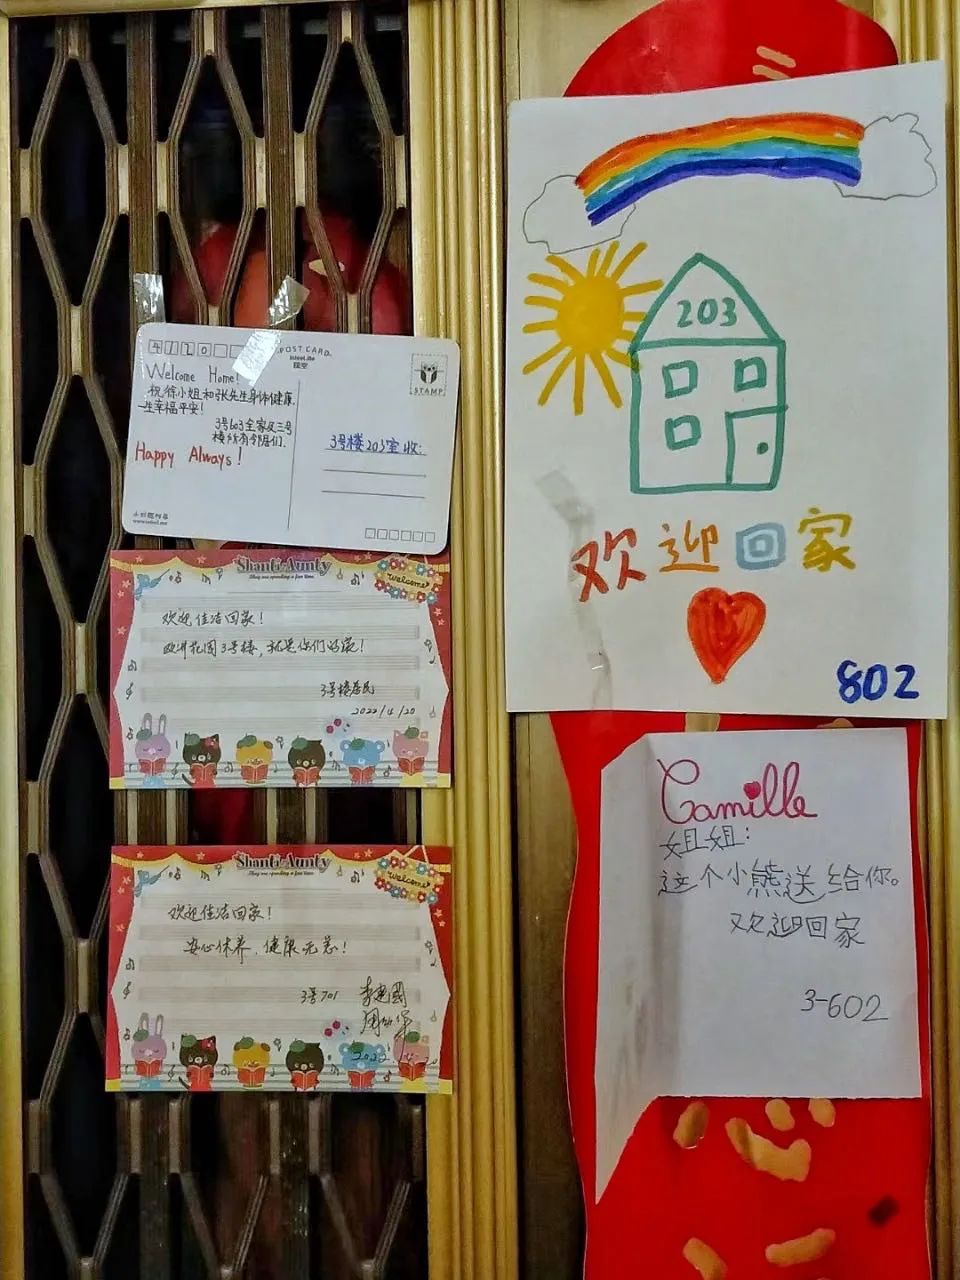 4120
POST CARD
STAMP
Welcome Home!
祝徐小姐和张先生身体健康,
一生幸福平安!
3号603全家及三号
楼所有邻居们.
Happy Always!
3号楼203室 收:
Shanti Aunty
Welcome
欢迎佳洁回家!
欧洲花园3号楼, 就是你们的家!
3号楼居民
2022/4/20
Shanti Aunty
Welcome
欢迎佳洁回家!
安心休养, 健康无恙!
3号701
2022
203
欢迎回家
802
Camille
姐姐:
这个小熊送给你。
欢迎回家
3-602